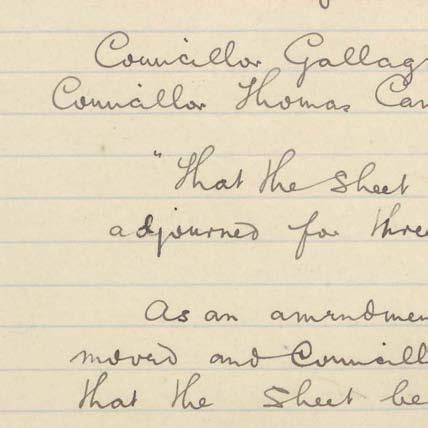 Councillor Gallag
Councillor Thomas Can
"That the Sheet
adjourned for three
As an amendmen
moved and Councill
that the Sheet be